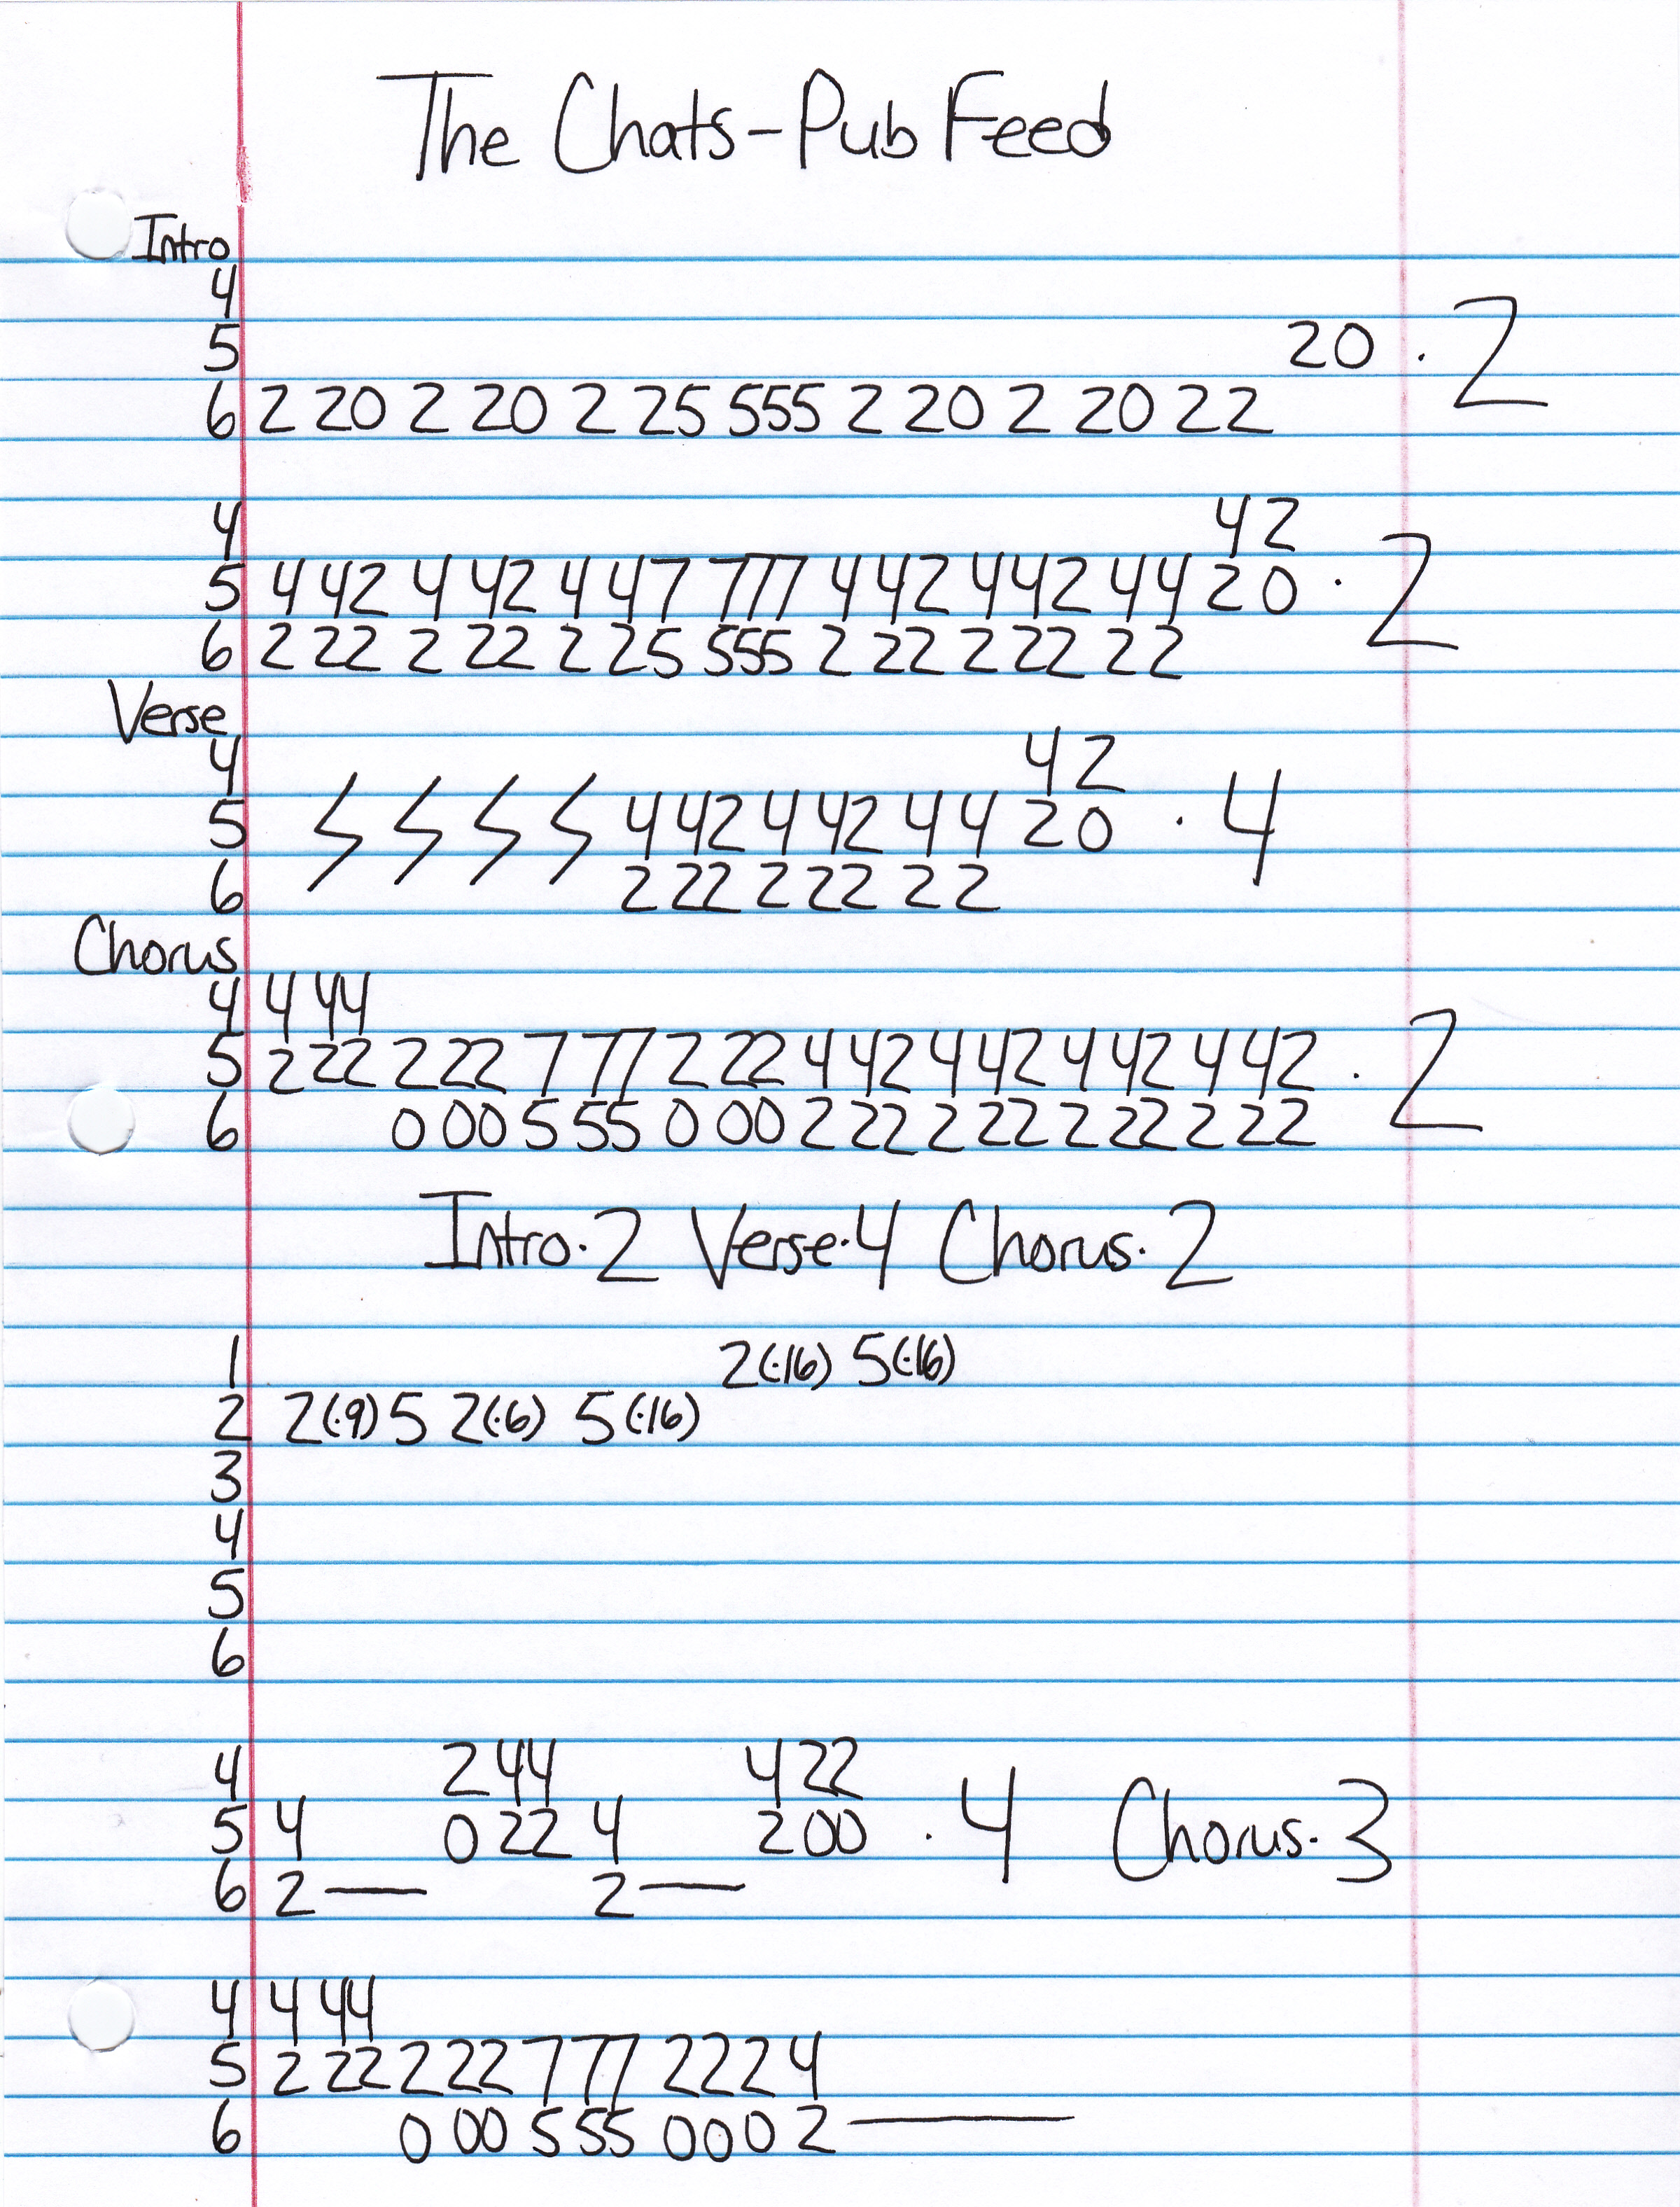 The Chats - Pub Feed
Intro
4
5 20 · 2
6 2 20 2 20 2 25 555 2 20 2 20 22
4 4 2
5 4 42 4 42 4 47 777 4 42 4 42 44 2 0 · 2
6 2 22 2 22 2 25 555 2 22 2 22 22
Verse
4 4 2
5 4 42 4 42 4 4 2 0 · 4
6 2 22 2 22 2 2
Chorus
4 4 44
5 2 22 2 22 7 77 2 22 4 42 4 42 4 42 4 42 · 2
6 0 00 5 55 0 00 2 22 2 22 2 22 2 22
Intro · 2 Verse · 4 Chorus · 2
1 2(·16) 5(·16)
2 2(·9) 5 2(·6) 5(·16)
3
4
5
6
4 2 44 4 22
5 4 0 22 4 2 00 · 4 Chorus · 3
6 2 — 2 —
4 4 44
5 2 22 2 22 7 77 2 2 2 4
6 0 00 5 55 0 0 0 2 —